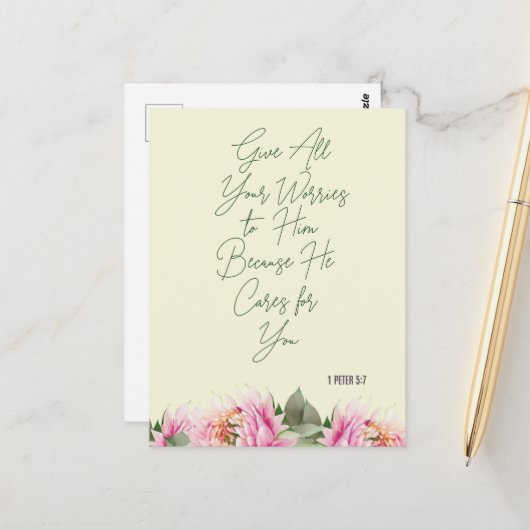 Give All
Your Worries
to Him
Because He
Cares for
You
1 PETER 5:7
zle